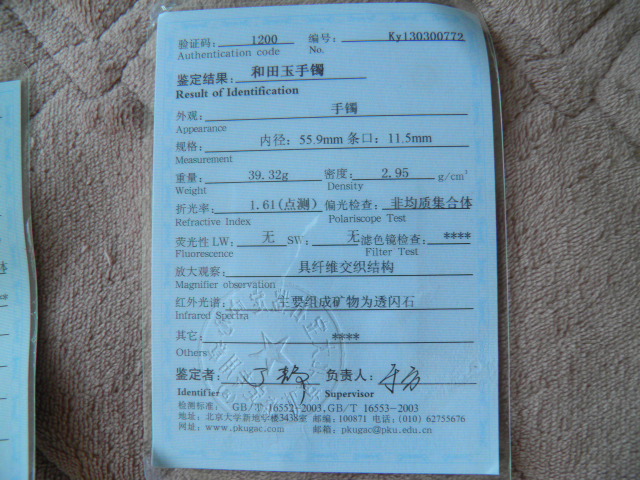 验证码: 1200 编号: Ky130300772
Authentication code No.
鉴定结果: 和田玉手镯
Result of Identification
外观: 手镯
Appearance
规格: 内径: 55.9mm 条口: 11.5mm
Measurement
重量: 39.32g 密度: 2.95 g/cm³
Weight Density
折光率: 1.61(点测) 偏光检查: 非均质集合体
Refractive Index Polariscope Test
荧光性 LW: 无 SW: 无 滤色镜检查: ****
Fluorescence Filter Test
放大观察: 具纤维交织结构
Magnifier observation
红外光谱: 主要组成矿物为透闪石
Infrared Spectra
其它: ****
Others
鉴定者: 负责人:
Identifier Supervisor
检测标准: GB/T 16552-2003,GB/T 16553-2003
地址: 北京大学新地学楼3438室 邮编: 100871 电话: (010) 62755676
网址: www.pkugac.com 邮箱: pkugac@pku.edu.cn